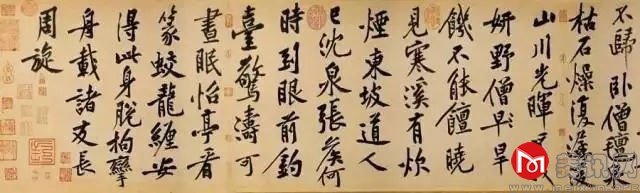 不歸卧僧氊
枯石燥復潺
山川光暉為我
妍野僧早旱
饑不能饘曉
見寒溪有炊
煙東坡道人
已沈泉張侯何
時到眼前釣
臺驚濤可
晝眠怡亭看
篆蛟龍纏安
得此身脫拘攣
舟載諸友長
周旋